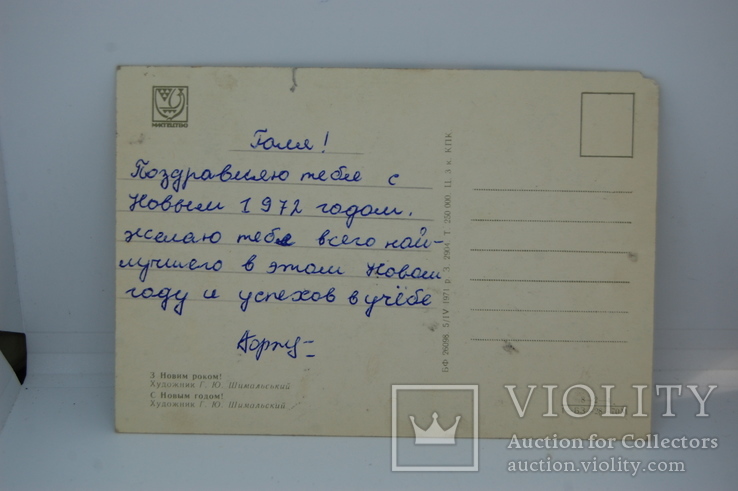 МИСТЕЦТВО
Галя!
Поздравляю тебя с
Новым 1972 годом.
желаю тебе всего най-
лучшего в этом Новом
году и успехов в учёбе
З Новим роком!
Художник Г. Ю. Шимальський
С Новым годом!
Художник Г. Ю. Шимальский
БФ 26096. 5/IV 1971 р. З. 2904. Т. 250 000. Ц. 3 к. КПК
VIOLITY
Auction for Collectors
auction.violity.com